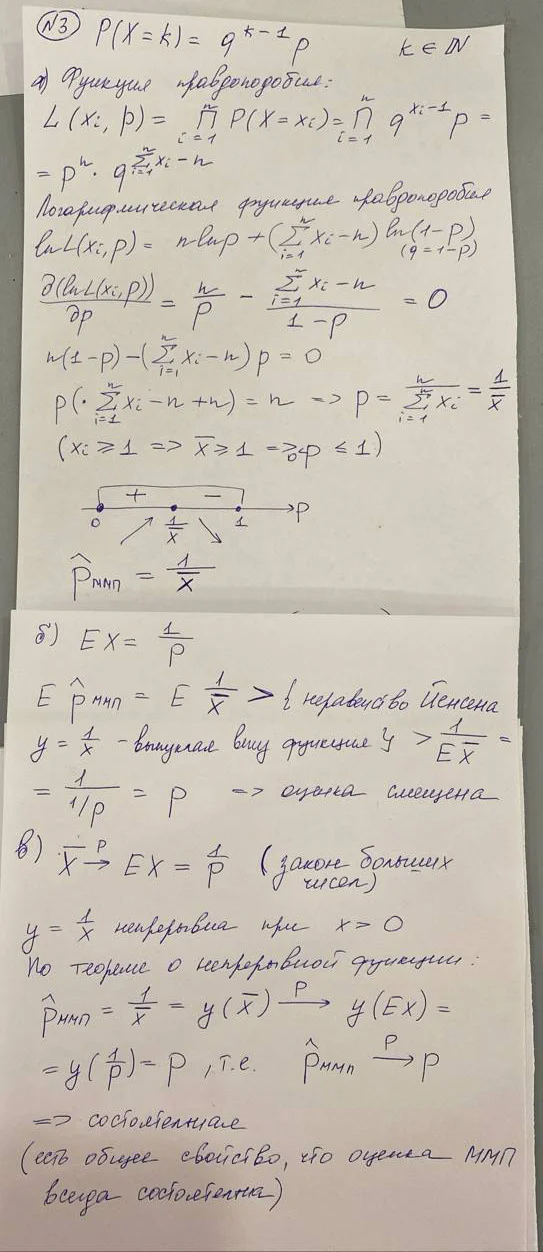 №3 P(X=k) = q^{k-1} p k ∈ ℕ
а) Функция правдоподобия:
L(x_i, p) = ∏_{i=1}^{n} P(X=x_i) = ∏_{i=1}^{n} q^{x_i-1} p =
= p^n · q^{∑_{i=1}^{n} x_i - n}
Логарифмическая функция правдоподобия
ln L(x_i, p) = n ln p + (∑_{i=1}^{n} x_i - n) ln(1-p)
(q = 1-p)
∂(ln L(x_i, p))/∂p = n/p - (∑_{i=1}^{n} x_i - n)/(1-p) = 0
n(1-p) - (∑_{i=1}^{n} x_i - n) p = 0
p(· ∑_{i=1}^{n} x_i - n + n) = n => p = n/(∑_{i=1}^{n} x_i) = 1/x̄
(x_i ⩾ 1 => x̄ ⩾ 1 => 0 < p ≤ 1)
+ −
0 1/x̄ 1 p
p̂_{ММП} = 1/x̄
б) EX = 1/p
E p̂_{ММП} = E 1/x̄ > { неравенство Йенсена
y = 1/x - выпуклая вниз функция } > 1/(E x̄) =
= 1/(1/p) = p => оценка смещена
в) X̄ →^P EX = 1/p (закон больших
чисел)
y = 1/x непрерывна при x > 0
По теореме о непрерывной функции:
p̂_{ММП} = 1/x̄ = y(x̄) →^P y(EX) =
= y(1/p) = p , т.е. p̂_{ММП} →^P p
=> состоятельная
(есть общее свойство, что оценка ММП
всегда состоятельна)